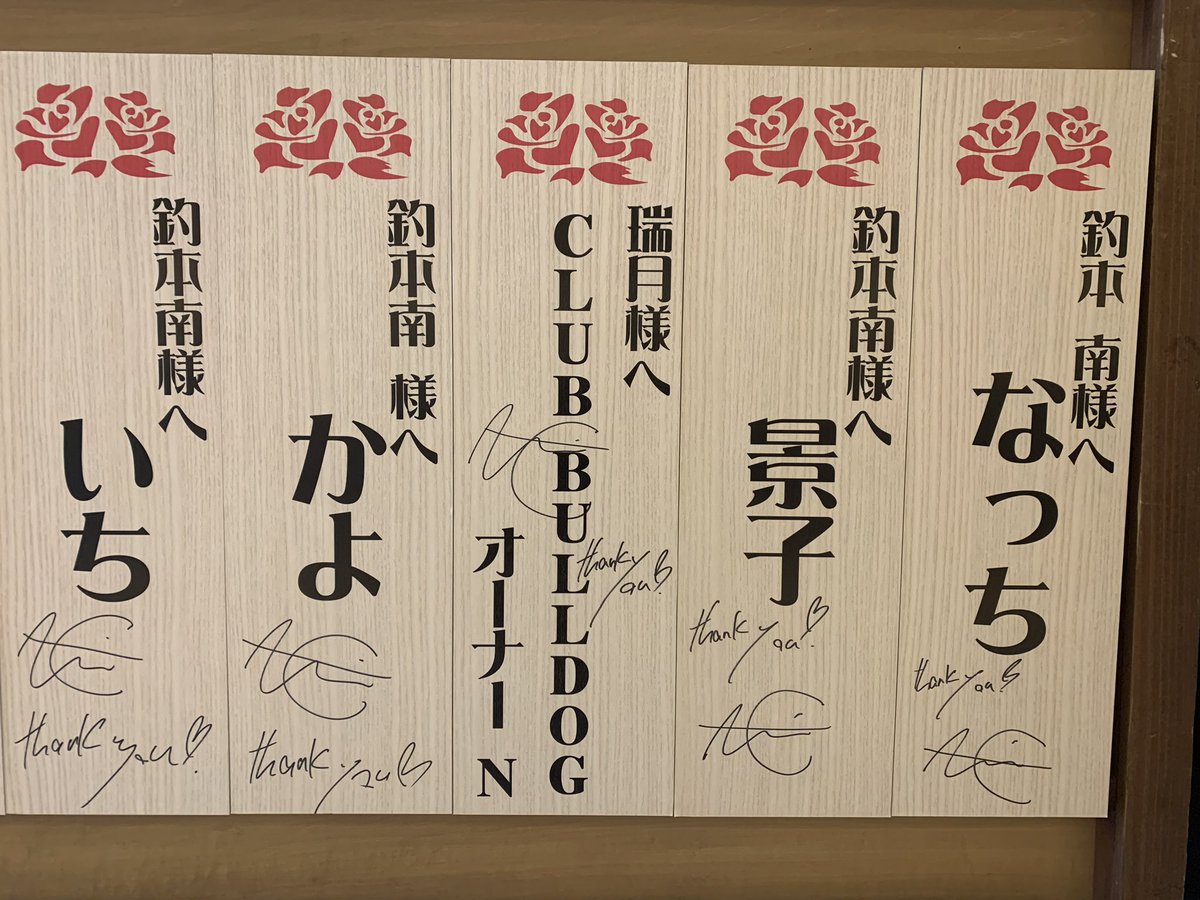 釣本 南様へ
なっち
thank you!
釣本南様へ
景子
thank you!
瑞月様へ
CLUB BULLDOG
オーナー N
thank you!
釣本南 様へ
かよ
thank you
釣本南様へ
いち
thank you!